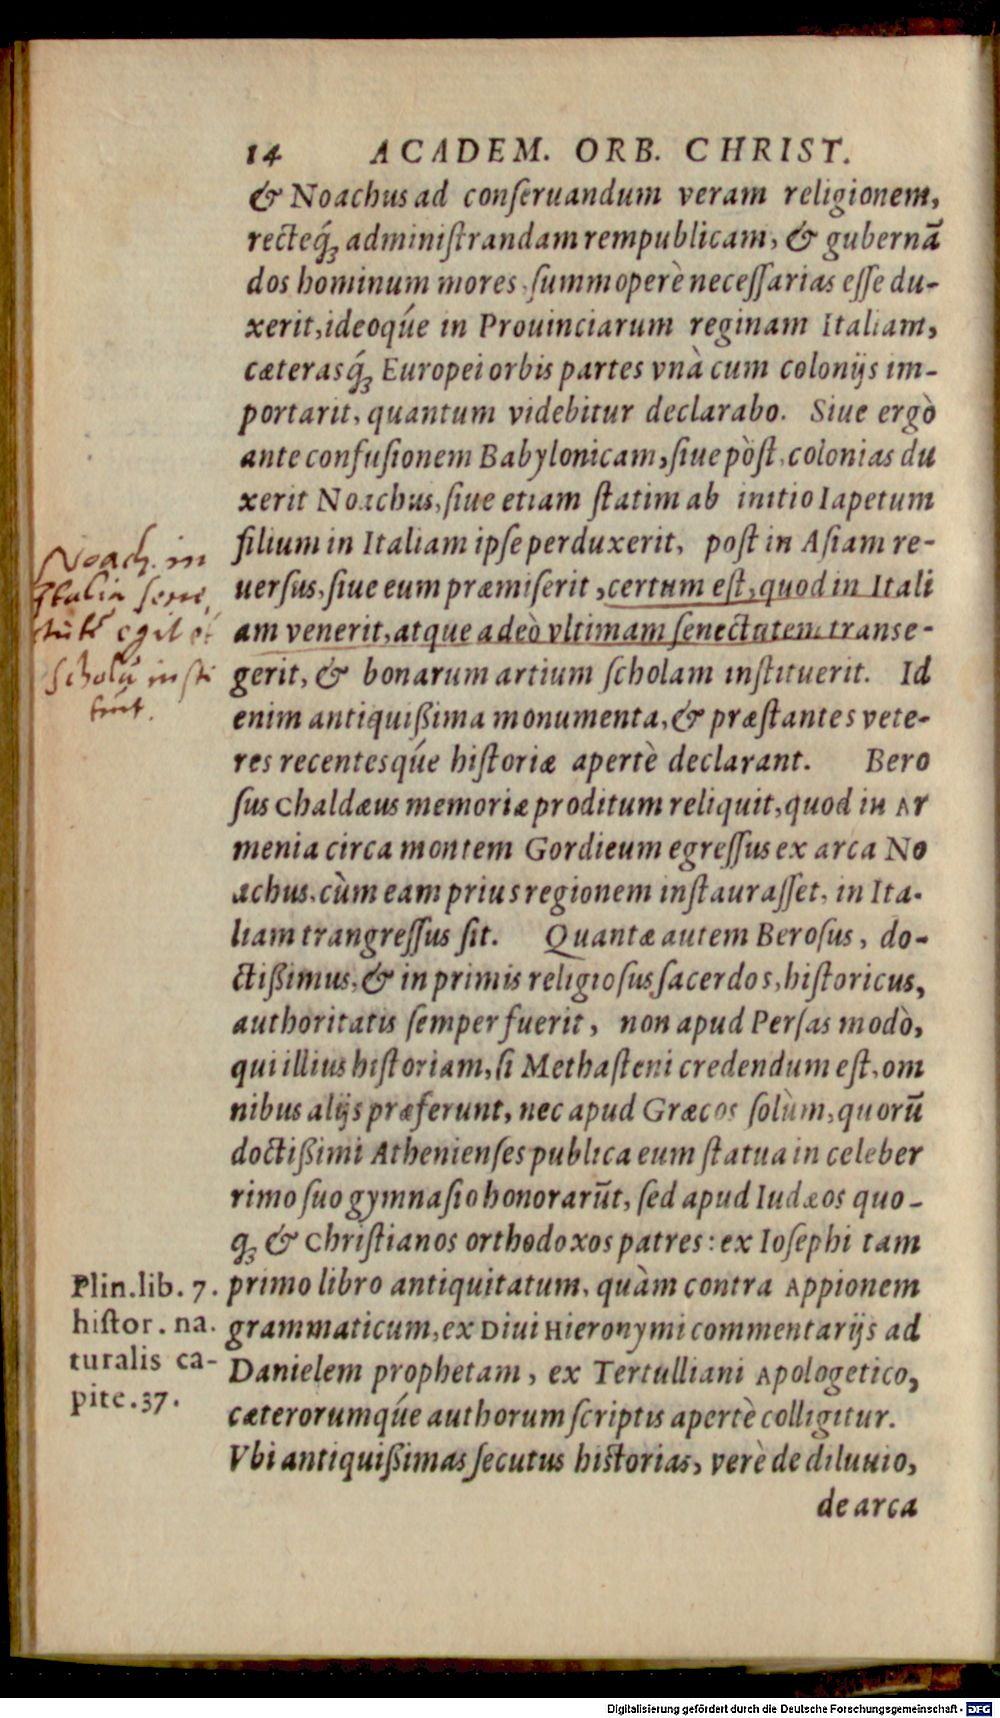 14 ACADEM. ORB. CHRIST.
& Noachus ad conſeruandum veram religionem,
recteq́ꝫ adminiſtrandam rempublicam, & gubernā
dos hominum mores, ſummoperè neceſſarias eſſe du-
xerit, ideoqúe in Prouinciarum reginam Italiam,
cæterasq́ꝫ Europei orbis partes vnà cum colonijs im-
portarit, quantum videbitur declarabo. Siue ergò
ante confuſionem Babylonicam, ſiue pòſt, colonias du
xerit Noachus, ſiue etiam ſtatim ab initio Iapetum
filium in Italiam ipſe perduxerit, poſt in Aſiam re-
uerſus, ſiue eum præmiſerit, certum eſt, quod in Itali
am venerit, atque adeò vltimam ſenectutem transe-
gerit, & bonarum artium ſcholam inſtituerit. Id
enim antiquißima monumenta, & præſtantes vete-
res recentesqúe hiſtoriæ apertè declarant. Bero
ſus Chaldæus memoriæ proditum reliquit, quod in Ar
menia circa montem Gordieum egreſſus ex arca No
achus, cùm eam prius regionem inſtauraſſet, in Ita-
liam trangreſſus ſit. Quantæ autem Beroſus, do-
ctißimus, & in primis religioſus ſacerdos, hiſtoricus,
authoritatis ſemper fuerit, non apud Perſas modò,
qui illius hiſtoriam, ſi Methaſteni credendum eſt, om
nibus alijs præferunt, nec apud Græcos ſolùm, quorū
doctißimi Athenienſes publica eum ſtatua in celeber
rimo ſuo gymnaſio honorarūt, ſed apud Iudæos quo-
qꝫ & Chriſtianos orthodoxos patres: ex Ioſephi tam
primo libro antiquitatum, quàm contra Appionem
grammaticum, ex Diui Hieronymi commentarijs ad
Danielem prophetam, ex Tertulliani Apologetico,
cæterorumqúe authorum ſcriptis apertè colligitur.
Vbi antiquißimas ſecutus hiſtorias, verè de diluuio,
de arca
Noach. in
Italia sene,
ctutē egit et
scholā insti
tuit.
Plin. lib. 7.
hiſtor. na.
turalis ca-
pite. 37.
Digitalisierung gefördert durch die Deutsche Forschungsgemeinschaft - DFG